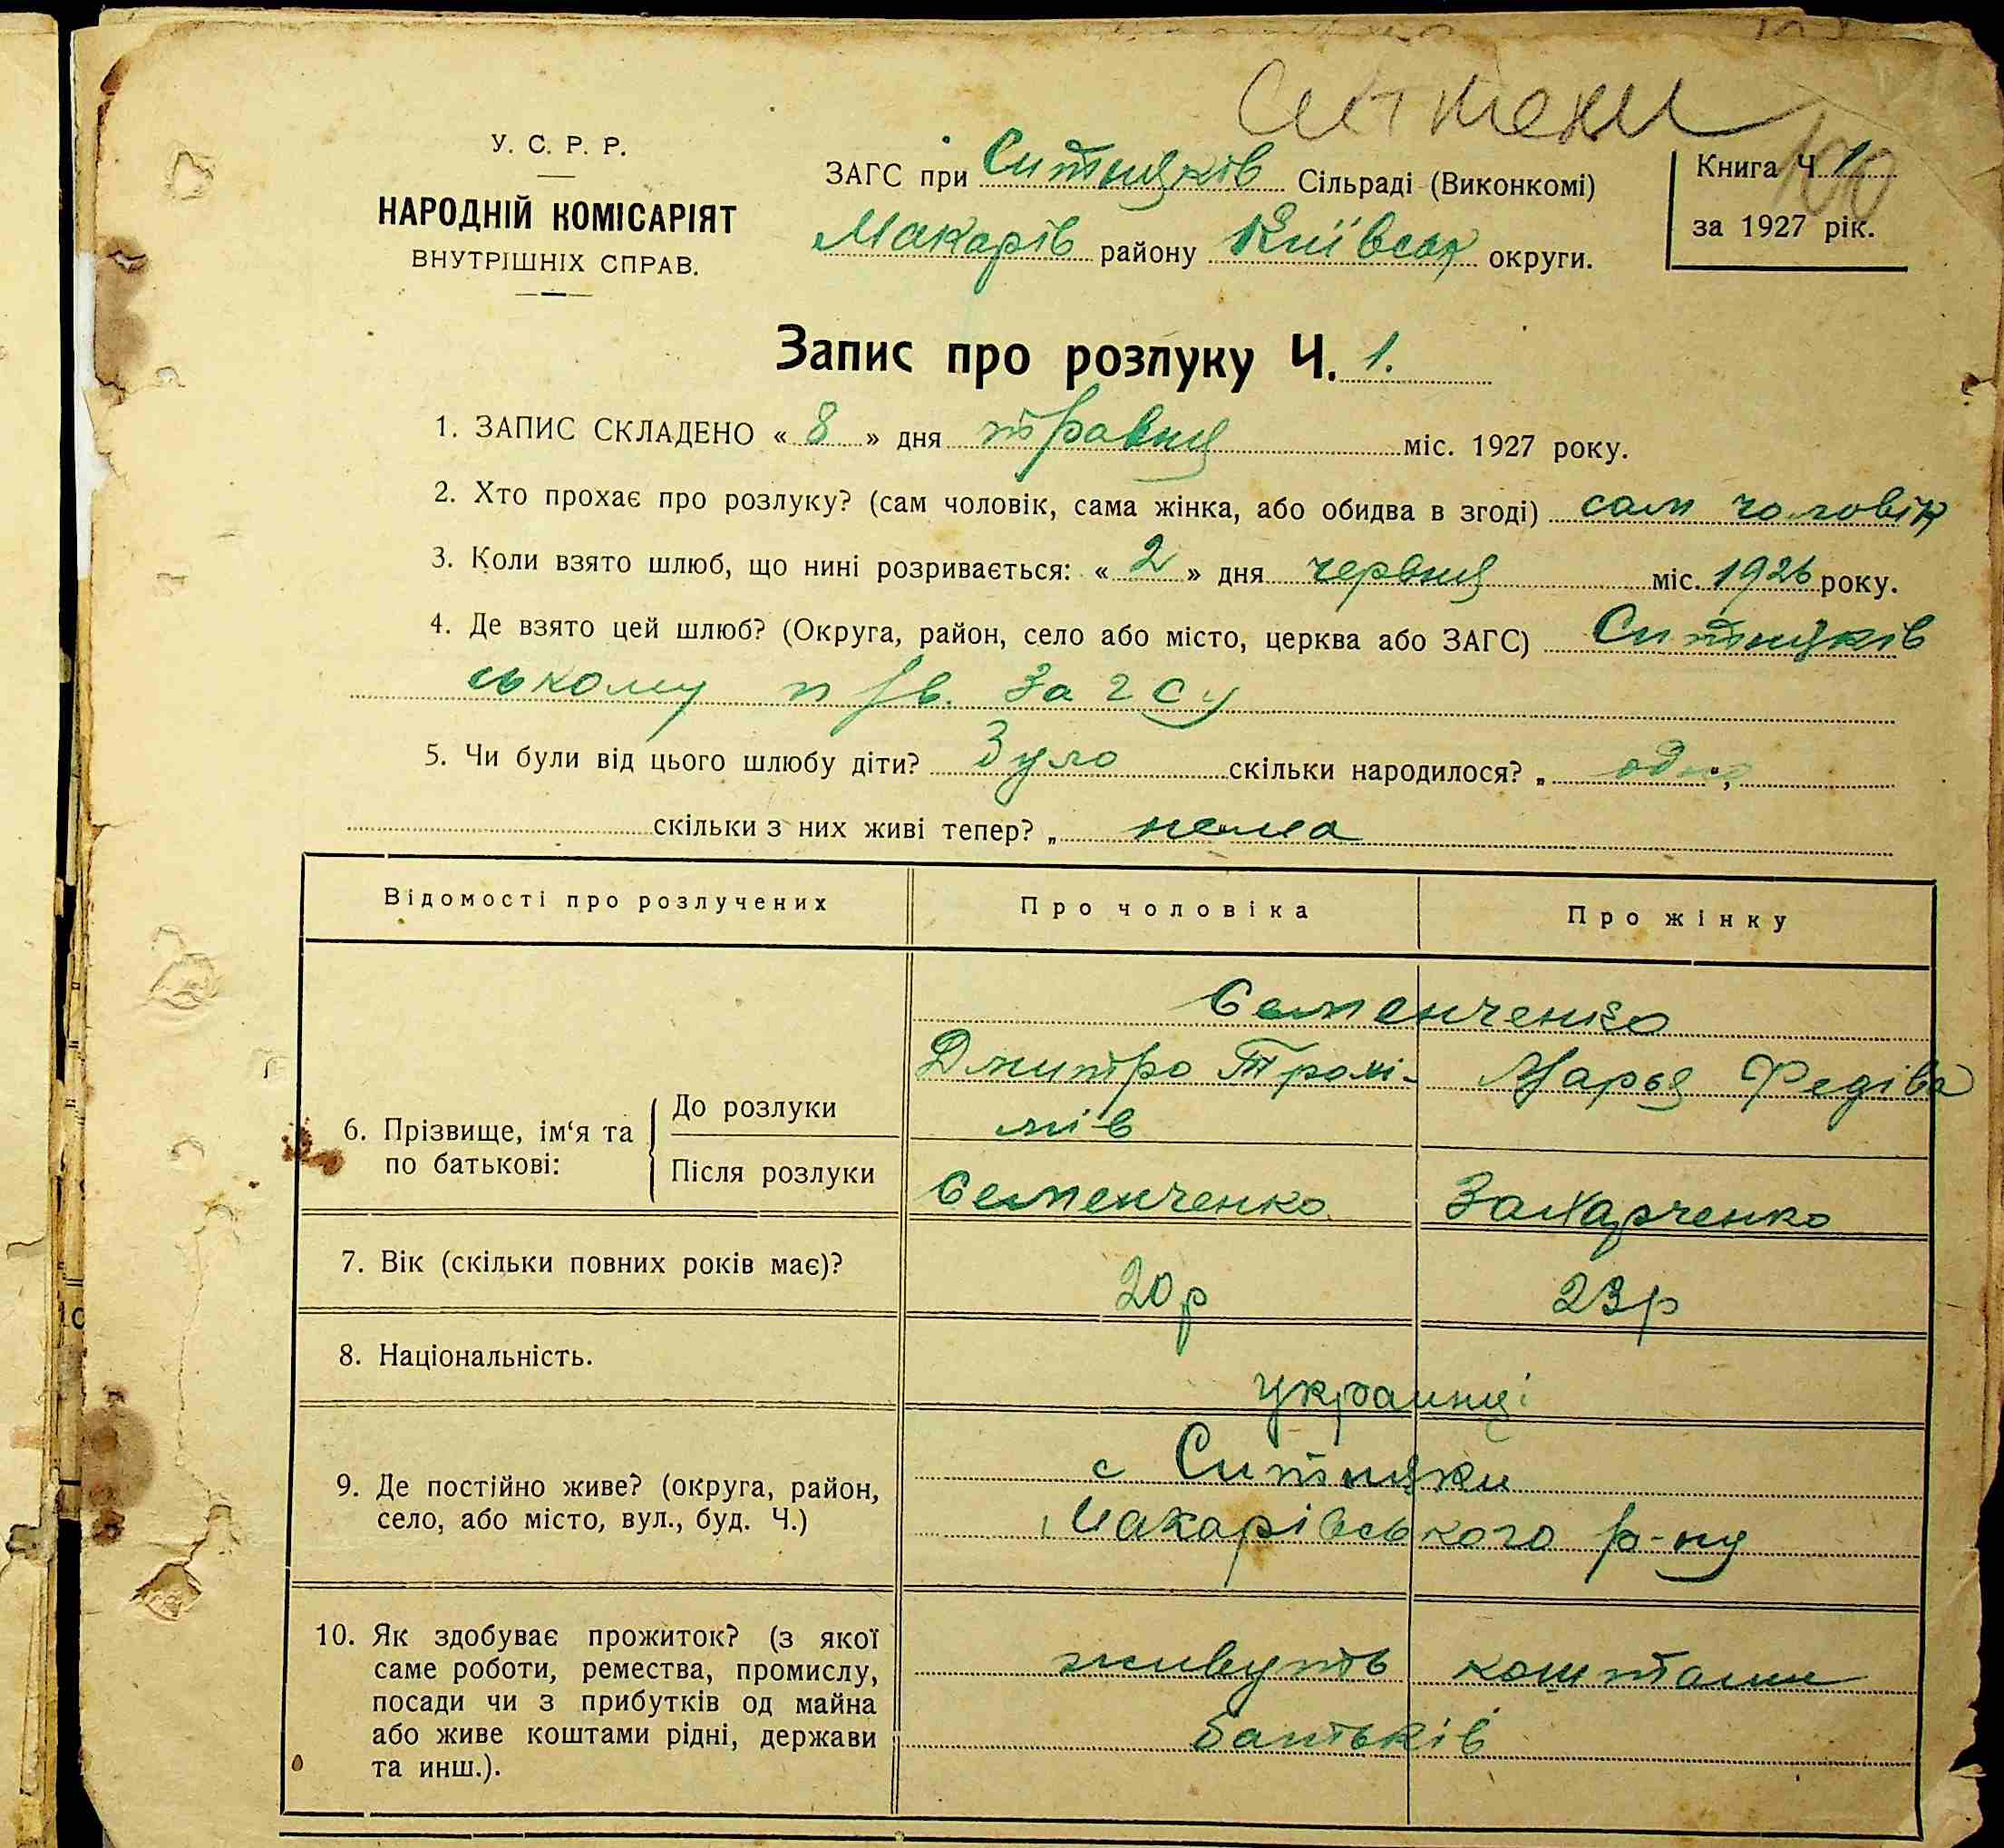 Ситняки
100
У. С. Р. Р.
НАРОДНІЙ КОМІСАРІЯТ
ВНУТРІШНІХ СПРАВ.
ЗАГС при Ситняків Сільраді (Виконкомі)
Макарів району Київськ округи.
Книга Ч 1
за 1927 рік.
Запис про розлуку Ч. 1.
1. ЗАПИС СКЛАДЕНО « 8 » дня травня міс. 1927 року.
2. Хто прохає про розлуку? (сам чоловік, сама жінка, або обидва в згоді) сам чоловік
3. Коли взято шлюб, що нині розривається: « 2 » дня червня міс. 1926 року.
4. Де взято цей шлюб? (Округа, район, село або місто, церква або ЗАГС) Ситняків
ському Загсу
5. Чи були від цього шлюбу діти? Було скільки народилося? „ одно
скільки з них живі тепер? „ нема
Відомості про розлучених
Про чоловіка
Про жінку
6. Прізвище, ім‘я та
по батькові:
До розлуки
Після розлуки
Семенченко
Дмитро Трохи-
мів
Марья Федіва
Семенченко
Захарченко
7. Вік (скільки повних років має)?
20р
23р
8. Національність.
украинці
9. Де постійно живе? (округа, район,
село, або місто, вул., буд. Ч.)
с Ситняки
Макарівського р-ну
10. Як здобуває прожиток? (з якої
саме роботи, ремества, промислу,
посади чи з прибутків од майна
або живе коштами рідні, держави
та инш.).
живуть коштами
батьків